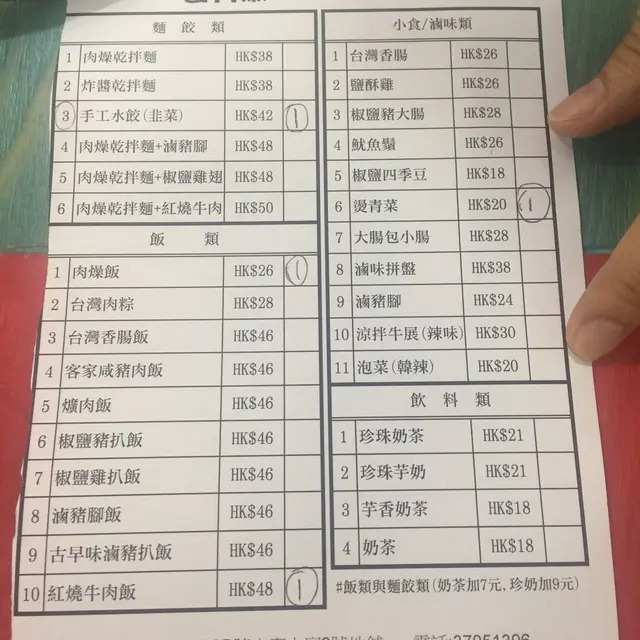 麵 餃 類
1 肉燥乾拌麵 HK$38
2 炸醬乾拌麵 HK$38
3 手工水餃(韭菜) HK$42 1
4 肉燥乾拌麵+滷豬腳 HK$48
5 肉燥乾拌麵+椒鹽雞翅 HK$48
6 肉燥乾拌麵+紅燒牛肉 HK$50
飯 類
1 肉燥飯 HK$26 1
2 台灣肉粽 HK$28
3 台灣香腸飯 HK$46
4 客家咸豬肉飯 HK$46
5 爌肉飯 HK$46
6 椒鹽豬扒飯 HK$46
7 椒鹽雞扒飯 HK$46
8 滷豬腳飯 HK$46
9 古早味滷豬扒飯 HK$46
10 紅燒牛肉飯 HK$48 1
小食/滷味類
1 台灣香腸 HK$26
2 鹽酥雞 HK$26
3 椒鹽豬大腸 HK$28
4 魷魚鬚 HK$26
5 椒鹽四季豆 HK$18
6 燙青菜 HK$20 1
7 大腸包小腸 HK$28
8 滷味拼盤 HK$38
9 滷豬腳 HK$24
10 涼拌牛展(辣味) HK$30
11 泡菜(韓辣) HK$20
飲 料 類
1 珍珠奶茶 HK$21
2 珍珠芋奶 HK$21
3 芋香奶茶 HK$18
4 奶茶 HK$18
#飯類與麵餃類(奶茶加7元, 珍奶加9元)